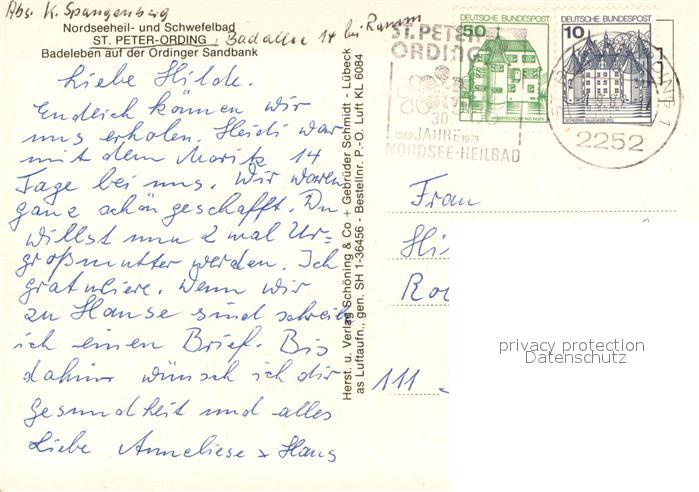 Abs. K. Spangenberg
Nordseeheil- und Schwefelbad
ST. PETER-ORDING, Badallee 14 bei Ramm
Badeleben auf der Ordinger Sandbank
Liebe Hilde.
Endlich können wir
uns erholen. Heidi war
mit dem Moritz 14
Tage bei uns. Wir waren
ganz schön geschafft. Du
willst nun 2 mal Ur=
großmutter werden. Ich
gratuliere. Wenn wir
zu Hause sind schreib
ich einen Brief. Bis
dahin wünsch ich dir
Gesundheit und alles
Liebe Anneliese + Hans
Herst. u. Verlag Schöning & Co + Gebrüder Schmidt - Lübeck
as Luftaufn., gen. SH 1-36456 - Bestellnr. P.-O. Luft KL 6084
ST. PETER
ORDING
30
1949 JAHRE 1979
NORDSEE-HEILBAD
DEUTSCHE BUNDESPOST
50
DEUTSCHE BUNDESPOST
10
SCHLOSS GLÜCKSBURG
2252
Frau
111
privacy protection
Datenschutz